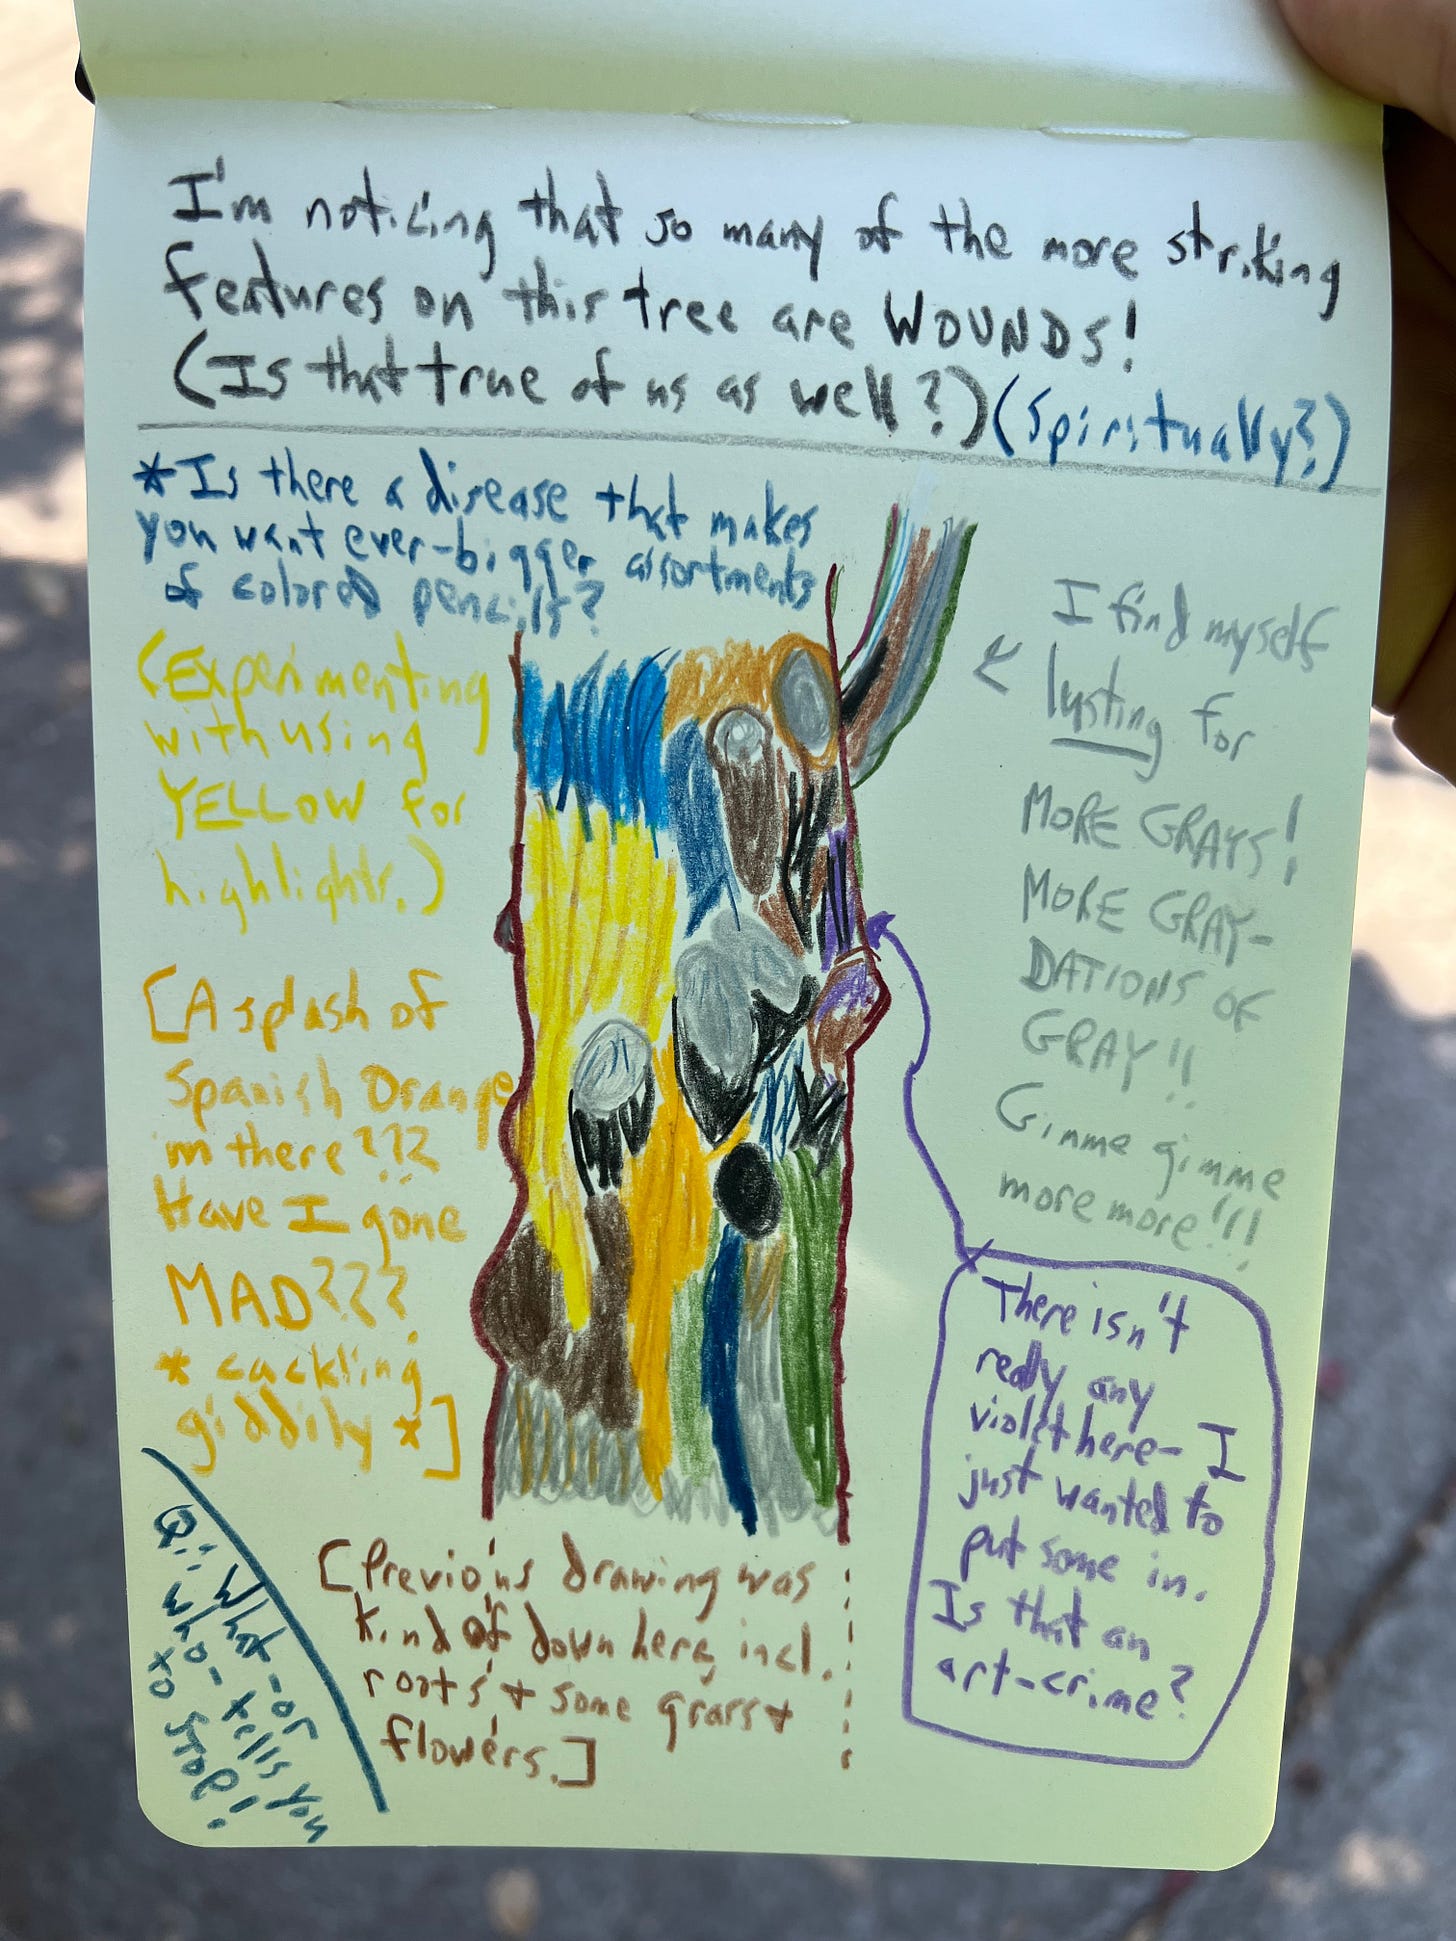 I'm noticing that so many of the more striking
features on this tree are WOUNDS!
(Is that true of us as well?) (Spiritually?)
*Is there a disease that makes
you want ever-bigger assortments
of colored pencils?
(Experimenting
with using
YELLOW for
highlights.)
[A splash of
Spanish Orange
in there???
Have I gone
MAD???
*cackling
giddily*]
I find myself
lusting for
MORE GRAYS!
MORE GRAY-
DATIONS OF
GRAY!!
Gimme gimme
more more!!!
There isn't
really any
violet here- I
just wanted to
put some in.
Is that an
art-crime?
[Previous drawing was
kind of down here, incl.
roots + some grass +
flowers.]
Q: What-or
who-tells you
to STOP!